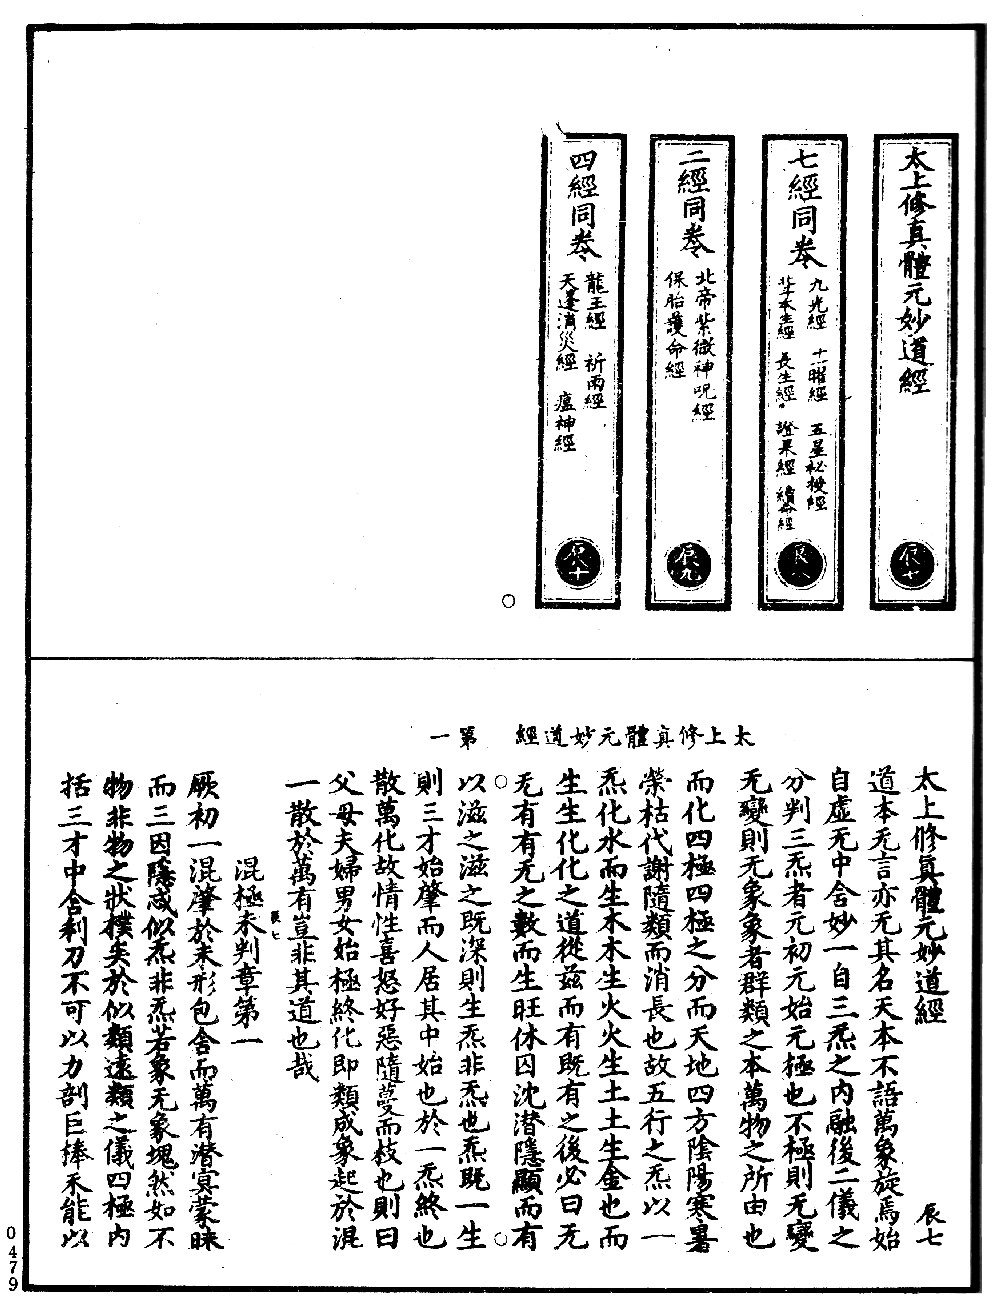 太上修真體元妙道經
辰七
七經同卷
九光經 十一曜經 五星祕授經
北斗本生經 長生經 證果經 續命經
辰八
二經同卷
北帝紫微神呪經
保胎護命經
辰九
四經同卷
龍王經 祈雨經
天蓬消災經 瘟神經
辰十
太上修真體元妙道經 第一
太上修真體元妙道經 辰七
道本无言亦无其名天本不語萬象旋焉始
自虛无中含妙一自三炁之內融後二儀之
分判三炁者元初元始元極也不極則无變
无變則无象象者群類之本萬物之所由也
而化四極四極之分而天地四方陰陽寒暑
榮枯代謝隨類而消長也故五行之炁以一
炁化水而生木木生火火生土土生金也而
生生化化之道從茲而有既有之後必曰无
无有有无之數而生旺休囚沈潛隱顯而有
以滋之滋之既深則生炁非炁也炁既一生
則三才始肇而人居其中始也於一炁終也
散萬化故情性喜怒好惡隨蔓而枝也則曰
父母夫婦男女始極終化即類成象起於混
一散於萬有豈非其道也哉
辰七
混極未判章第一
厥初一混肇於未形包含而萬有潛寞蒙昧
而三因隱咸似炁非炁若象无象塊然如不
物非物之狀樸矣於似類遠類之儀四極內
括三才中含利刀不可以力剖巨棒禾能以
0479